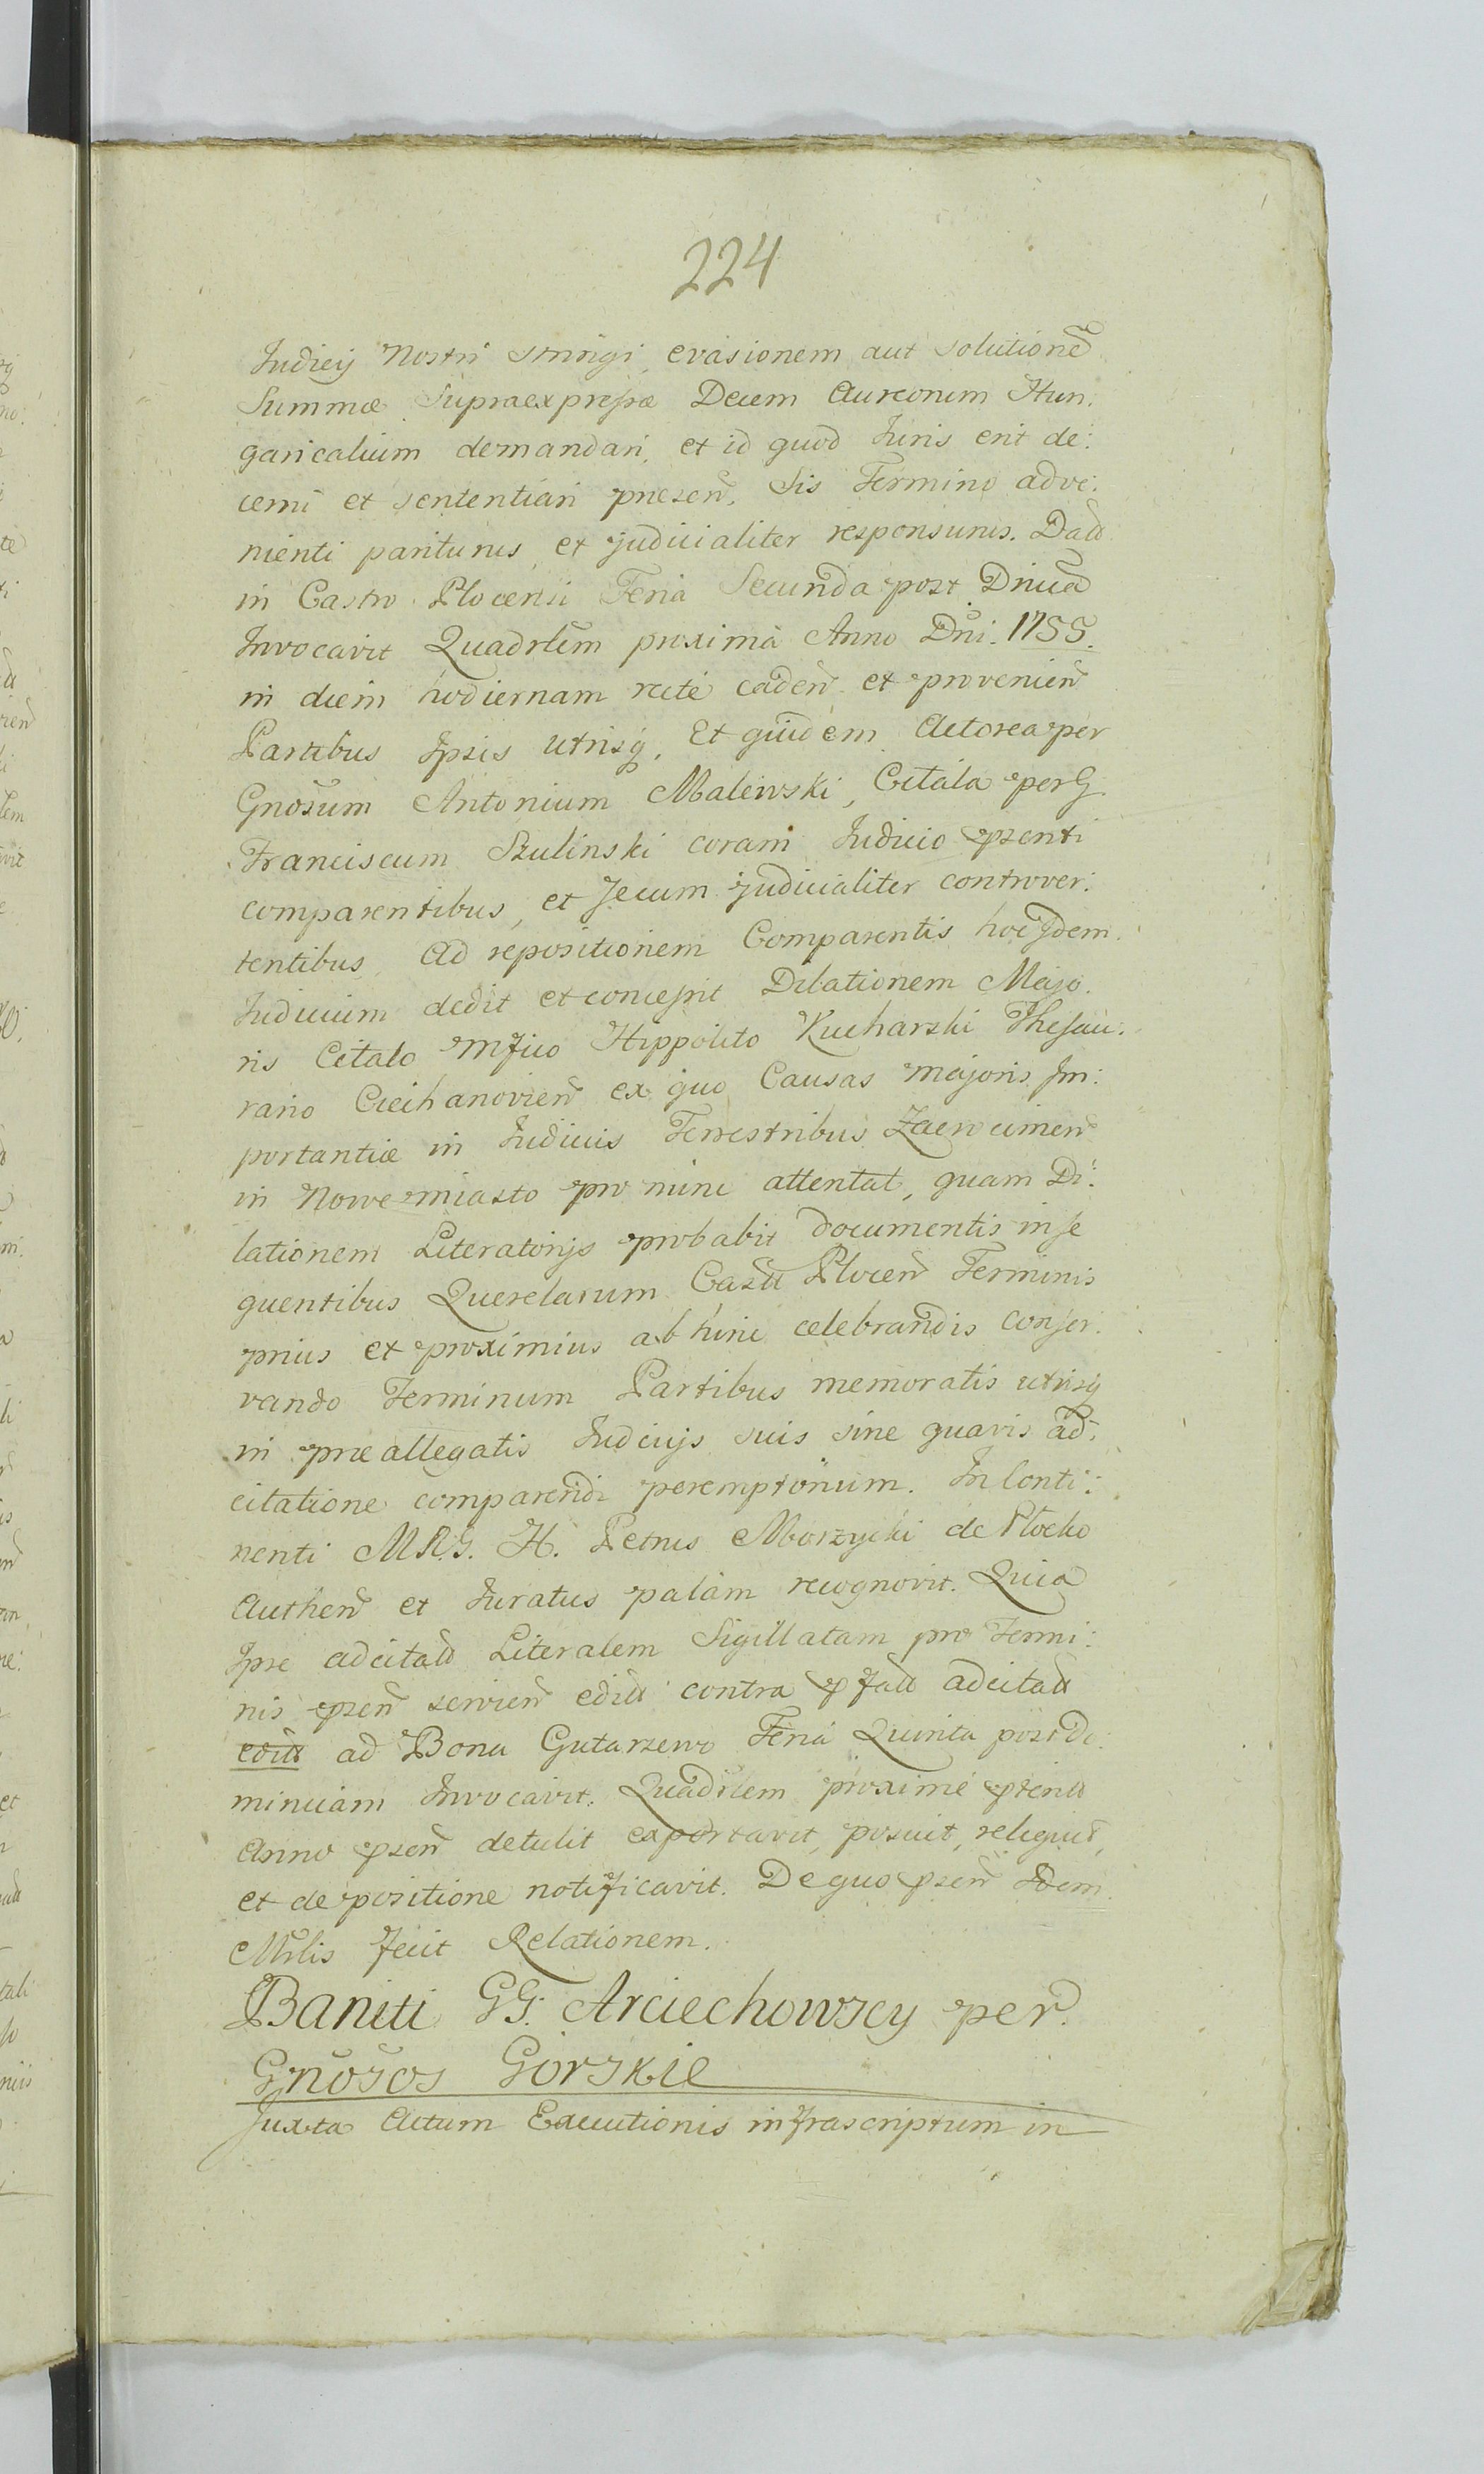 224
Judicÿ Nostri stringi, evasionem aut solutionẽ
Summæ Supraexpressæ Decem Aureorum Hun:
garicalium demandari, et id quod Juris erit de:
cerni et sententiari præsen̄. Sis Termino adve:
nienti pariturus, et judicialiter responsurus. Datt
in Castro Plocensi Feria Secunda post Dnicã
Invocavit Quadrlem proxima Anno Dn̄i. 1755.
in diem hodiernam rite caden̄ et provenien̄
Partibus Ipsis utrisq. Et quidem Actorea per
Gnosum Antonium Malewski, Citata per G.
Franciscum Szulinski coram Judicio psenti
comparentibus, et secum judicialiter controver:
tentibus, Ad repositionem Comparentis hoc Idem
Judicium dedit et concessit Dilationem Majo.
ris Citato Mfico Hippolito Kucharski Thesau:
rario Ciechanovien̄ ex quo Causas majoris Im:
portantiæ in Judiciis Terrestribus Zacrocimen̄
in Nowemiasto pro nunc attentat, quam Di:
lationem Literatorijs probabit documentis in se
quentibus Querelarum Castr Plocen̄ Terminis
prius et proximius abhinc celebrandis conser:
vando Terminum Partibus memoratis utrisq
in præallegatis Judicijs suis sine quavis ad:
citatione comparendi peremptorium. In Conti:
nenti M R. G. H. Petrus Morzycki de Płocko
Authen̄ et Juratus palam recognovit. Quia
Ipse adcitatt Literalem Sigillatam pro Termi:
nis psen̄ servien̄ editt contra pfatt adcitatt
editt ad Bona Gutarzewo Feria Quinta post Do:
minicam Invocavit. Quadrlem proxime pterita
Anno psen̄ detulit exportavit, posuit, reliquit,
et de positione notificavit. De quo psen̄ Idem
Mrlis fecit Relationem.
Baniti GG. Arciechowscy per
Gnosos Gorskie
Juxta Actum Executionis infrascriptum in